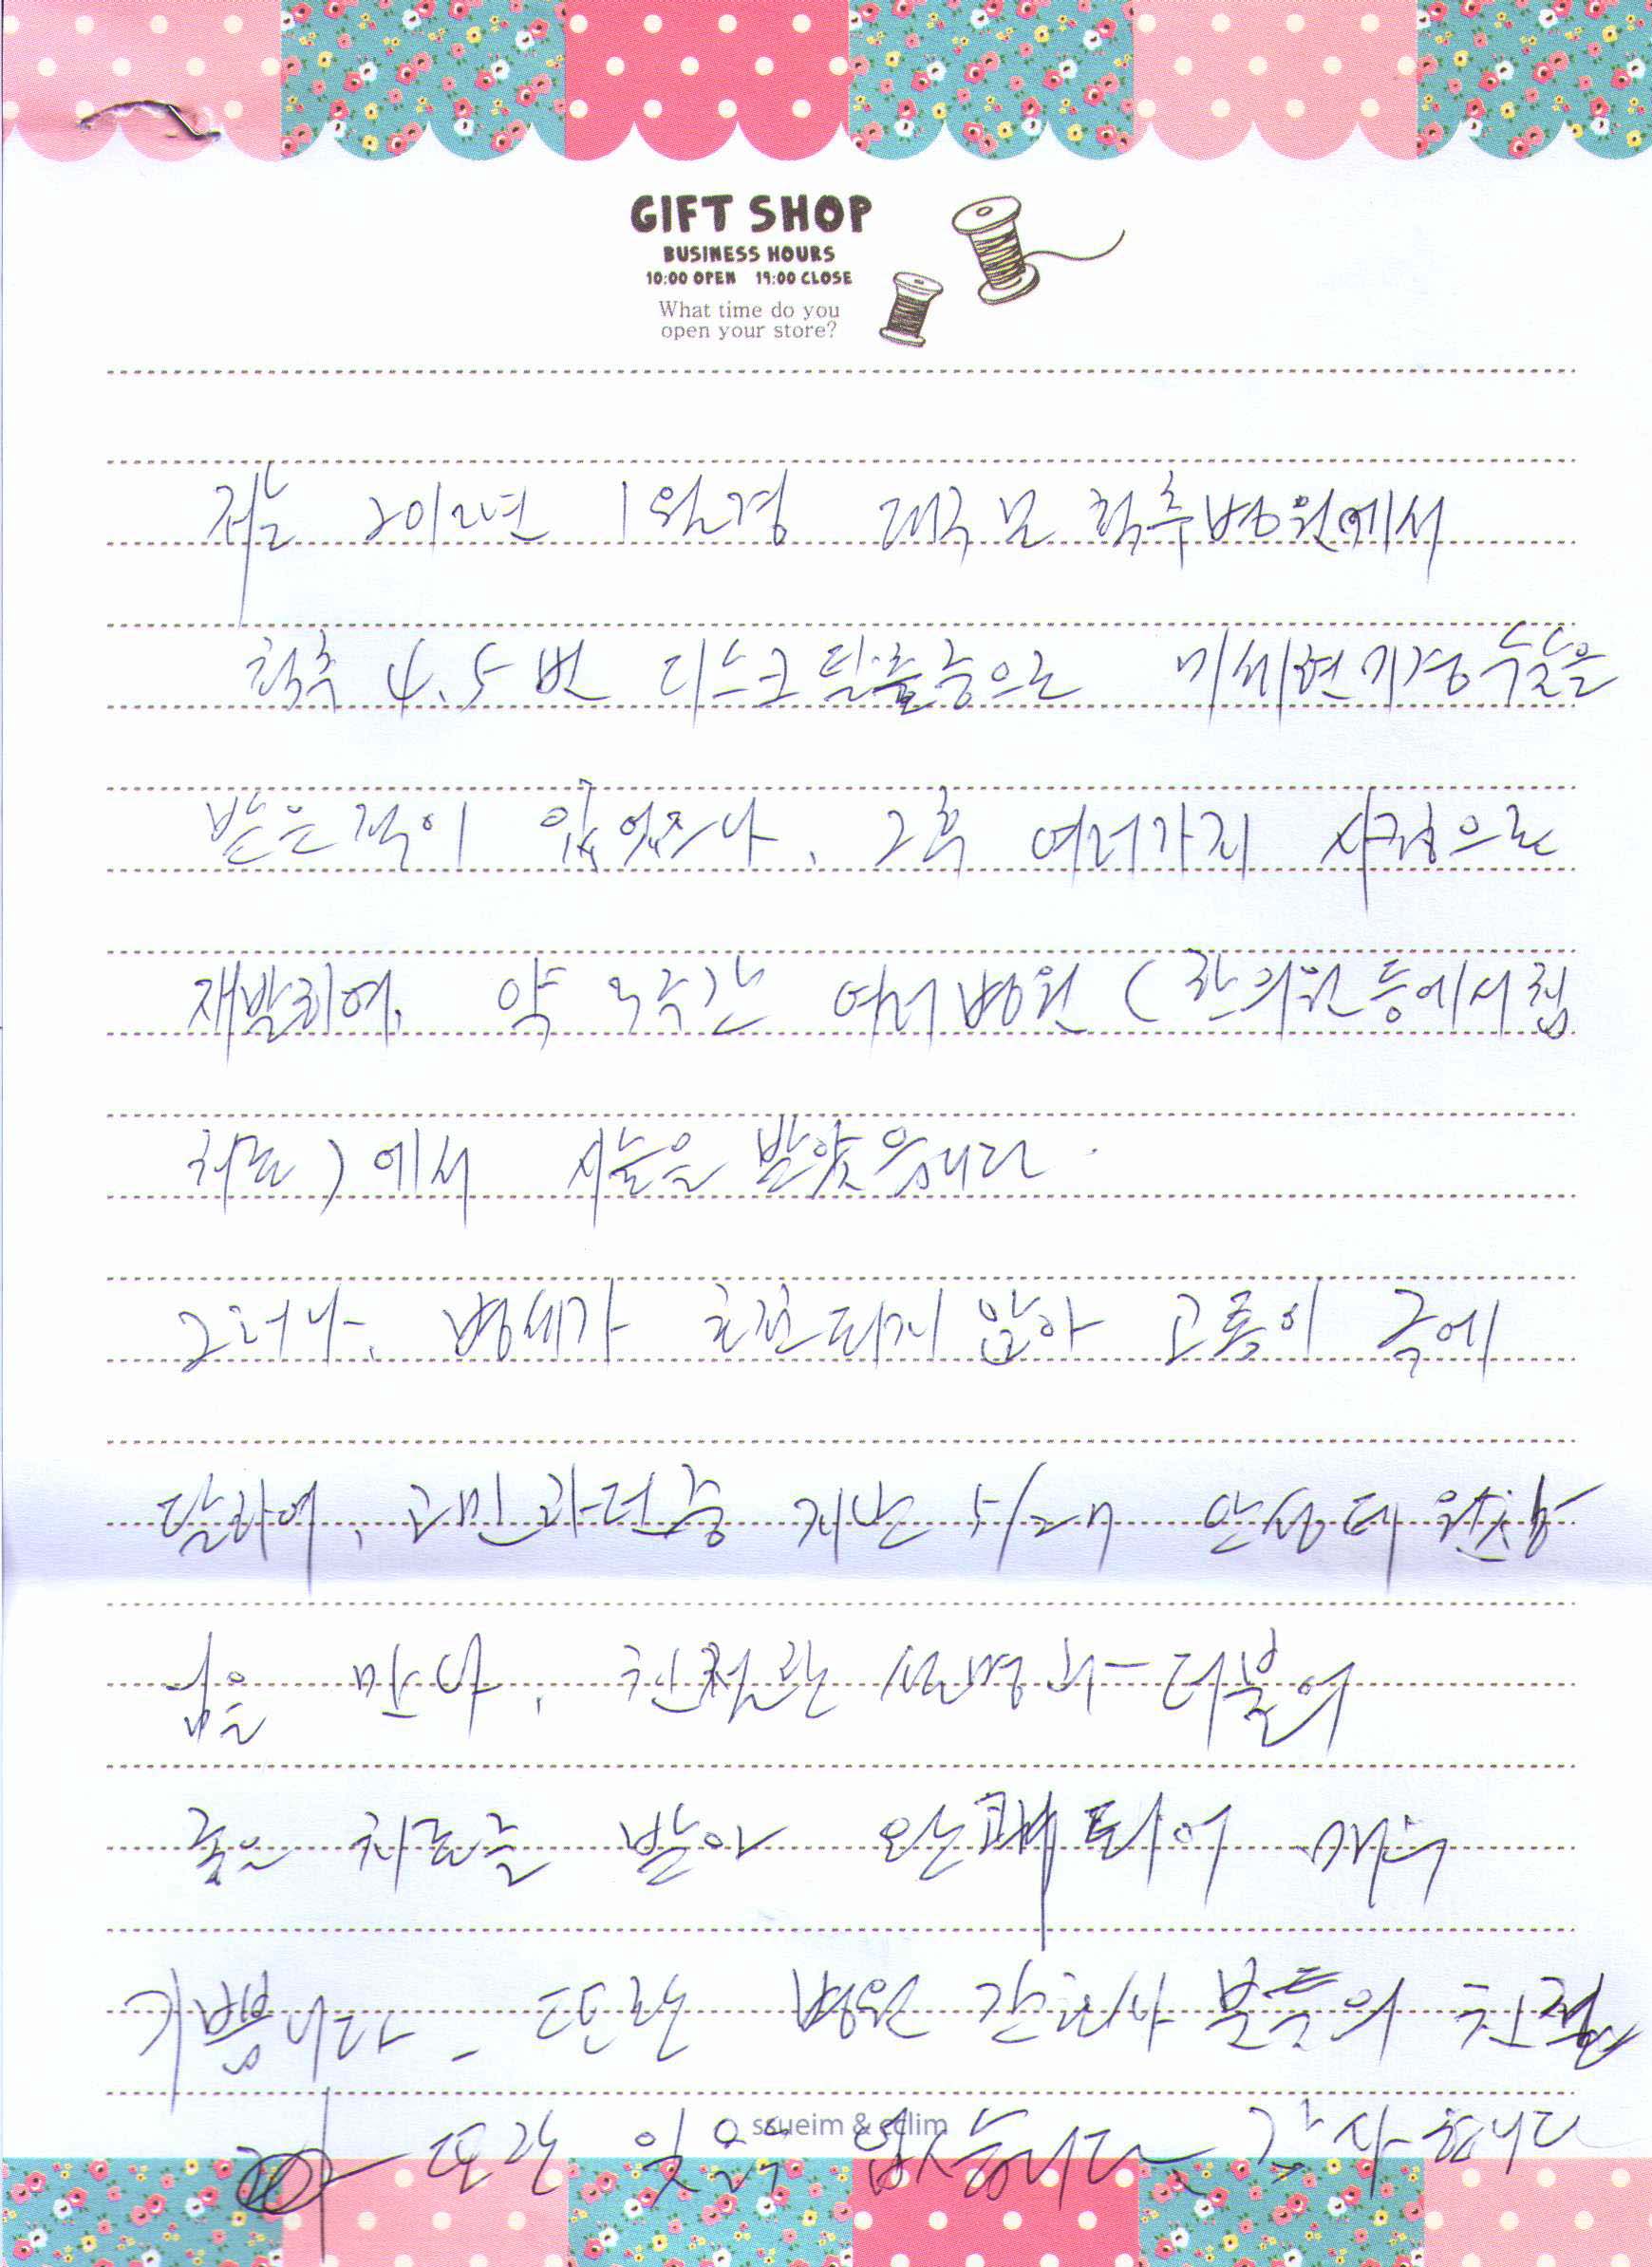 GIFT SHOP
BUSINESS HOURS
10:00 OPEN 19:00 CLOSE
What time do you
open your store?
저는 2012년 1월경 대구 모 척추병원에서
척추 4.5번 디스크탈출증으로 미세현미경수술을
받은적이 있었으나, 그후 여러가지 사정으로
재발되어, 약 3주간 여러병원 (한의원등에서 침
치료)에서 시술을 받았읍니다.
그러나, 병세가 호전되지 않아 고통이 극에
달하여, 고민하던중 지난 5/27 안상태 원장
님을 만나, 친절한 설명과 더불어
좋은 치료를 받아 완쾌되어 매우
기쁩니다. 또한 병원 간호사 분들의 친절
또한 잊을수 없습니다. 감사합니다
ssueim & eclim